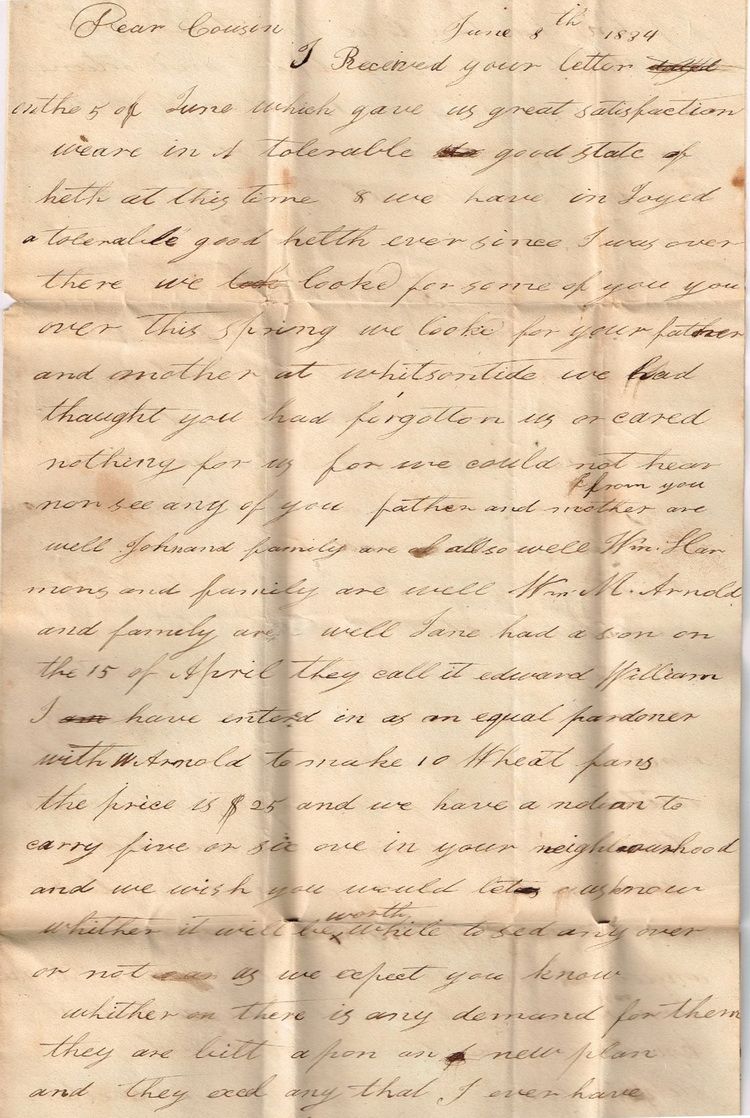 Dear Cousin June 8th 1834
I Received your letter dated
on the 5 of June which gave us great satisfaction
weare in A tolerable good state of
helth at this time & we have in Joyed
a tolerable good helth ever since I was over
there we looke for some of you you
over this spring we looke for your father
and mother at whitsontide we had
thaught you had forgotton us or cared
nothing for us for we could not hear
from you
nor see any of you father and mother are
well Johnand family are allso well Wm. Har
mons and family are well Wm M. Arnold
and family are well Jane had a son on
the 15 of April they call it edward William
I am have enterd in as an equal pardoner
with W Arnold to make 10 Wheat fans
the price is $25 and we have a notion to
carry five or six ove in your neighbourhood
and we wish you would let us know
worth
whether it will be while to sed any over
or not as we expect you know
whither there is any demand for them
they are bilt apon an new plan
and they exed any that I ever have